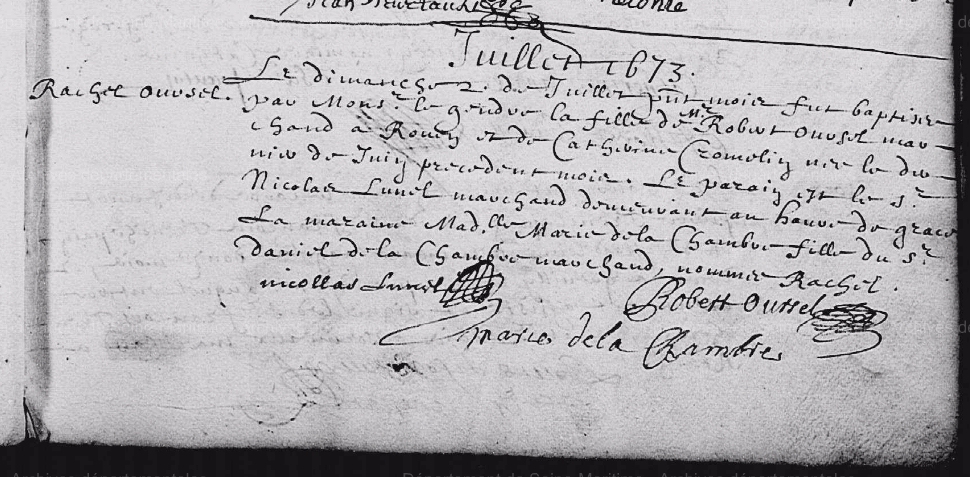 Juillet 1673.
Rachel Oursel.
Le dimanche 2. de Juillet pñt mois fut baptisée
par Monsr. le gendre la fille de Mr Robert Oursel mar-
chand a Rouen et de Catherine Cromelin née le der-
nier de Juin precedent mois. Le parain est le sr.
Nicolas Lunel marchand demeurant au havre de grace
La maraine Madlle. Marie de la Chambre fille du sr
daniel de la Chambre marchand, nommée Rachel.
nicollas Lunel
Robert Oursel
marie de la Chambre